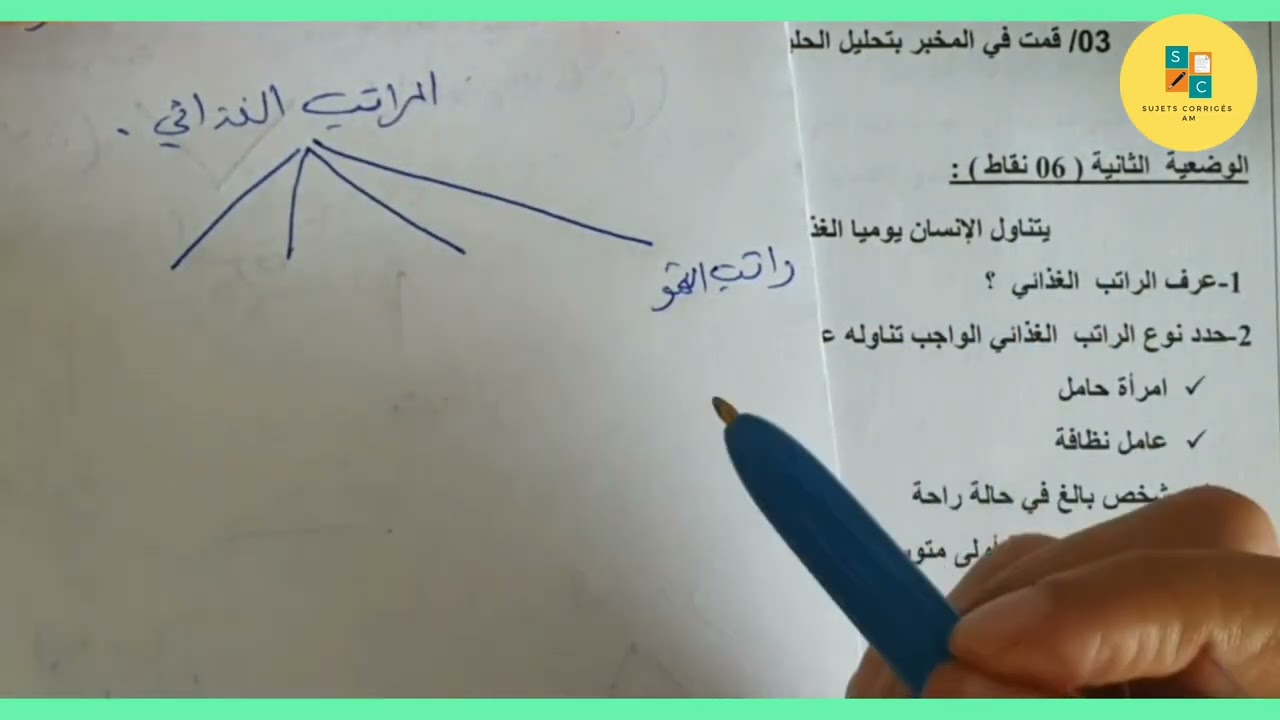 03/ قمت في المخبر بتحليل الحلي
الوضعية الثانية ( 06 نقاط ) :
يتناول الإنسان يوميا الغذ
1-عرف الراتب الغذائي ؟
2-حدد نوع الراتب الغذائي الواجب تناوله ع
✓ امرأة حامل
✓ عامل نظافة
شخص بالغ في حالة راحة
أولى متو
المراتب الغذائي .
راتب النمو
S
C
SUJETS CORRIGÉS
AM